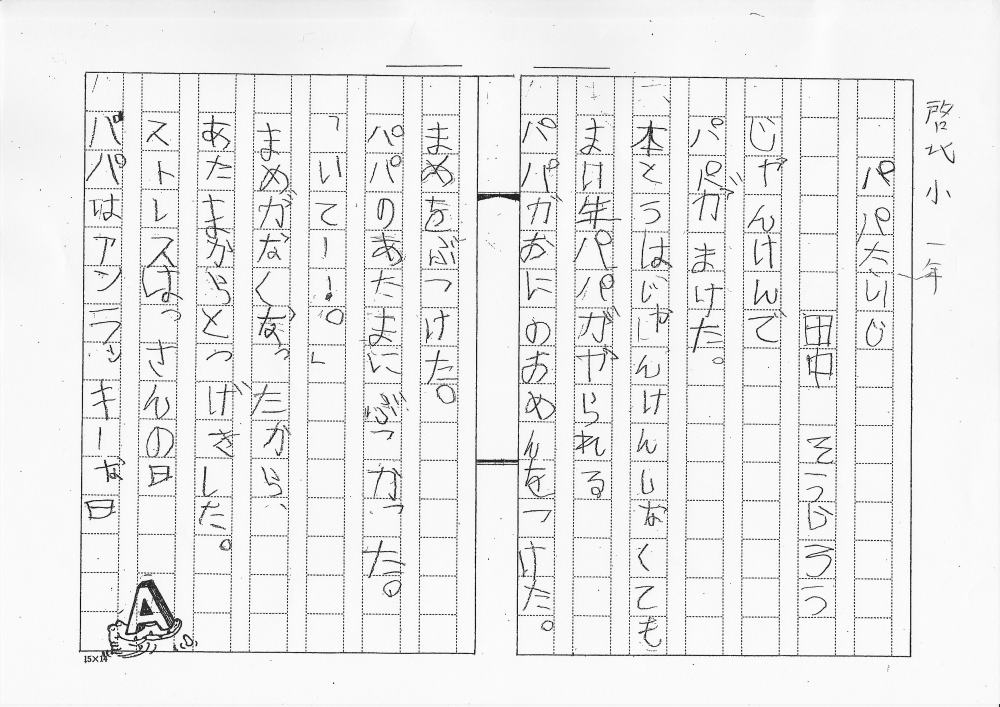 啓北小 一年
パパたいじ
田中 そうじろう
じゃんけんで
パパがまけた。
本とうはじゃんけんしなくても
まい年パパがやられる
パパがおにのおめんをつけた。
まめをぶつけた。
パパのあたまにぶつかった。
「いてー!。」
まめがなくなったから、
あたまからとつげきした。
ストレスはっさんの日
パパはアンラッキーな日
A
15×14